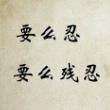 要么忍
要么残忍